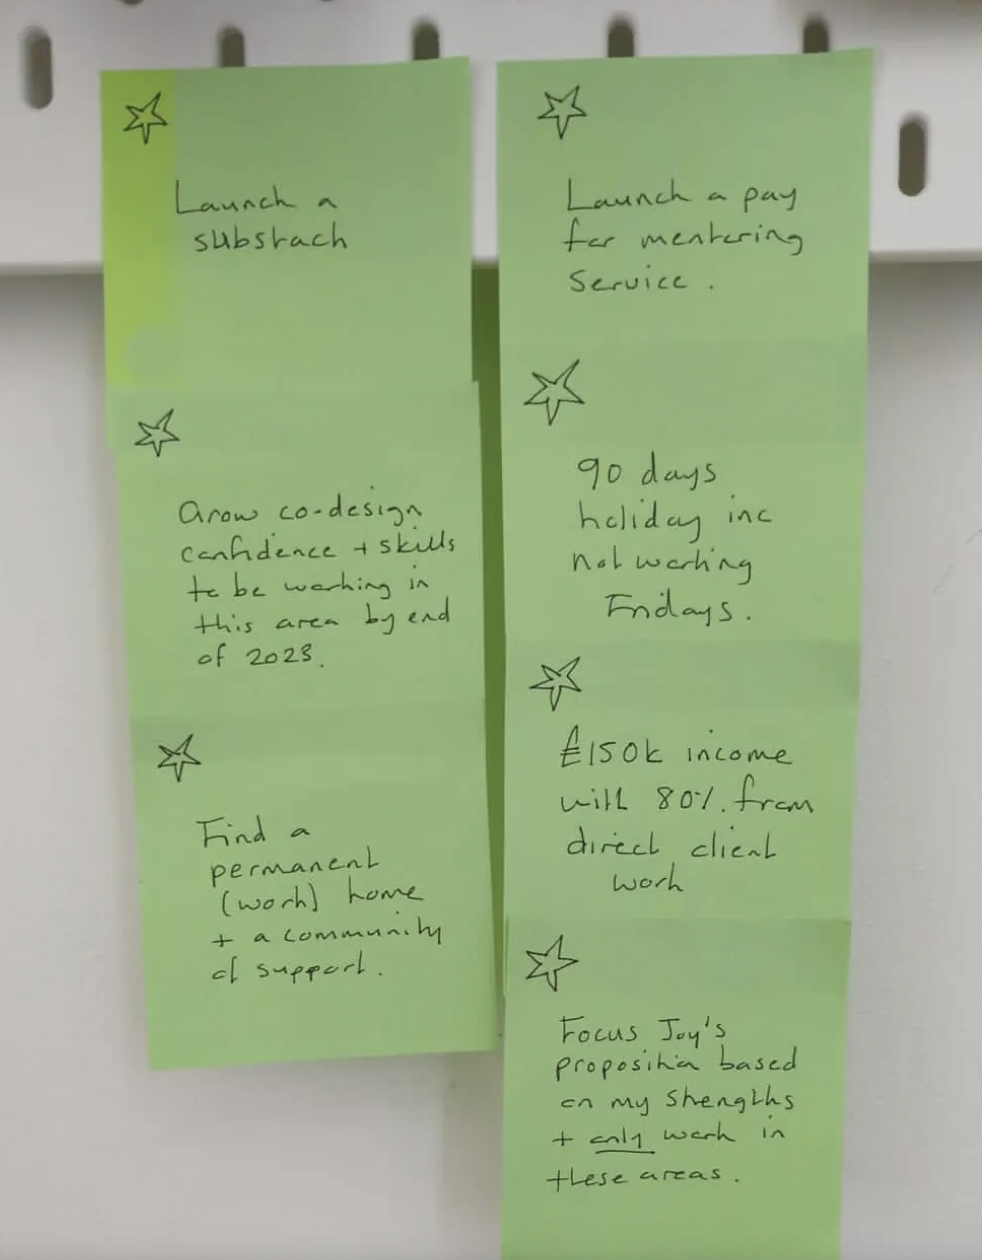 Launch a
substack
Grow co-design
confidence + skills
to be working in
this area by end
of 2023.
Find a
permanent
(work) home
+ a community
of support.
Launch a pay
for mentoring
service.
90 days
holiday inc
not working
Fridays.
£150k income
with 80% from
direct client
work
Focus Joy's
proposition based
on my strengths
+ only work in
these areas.